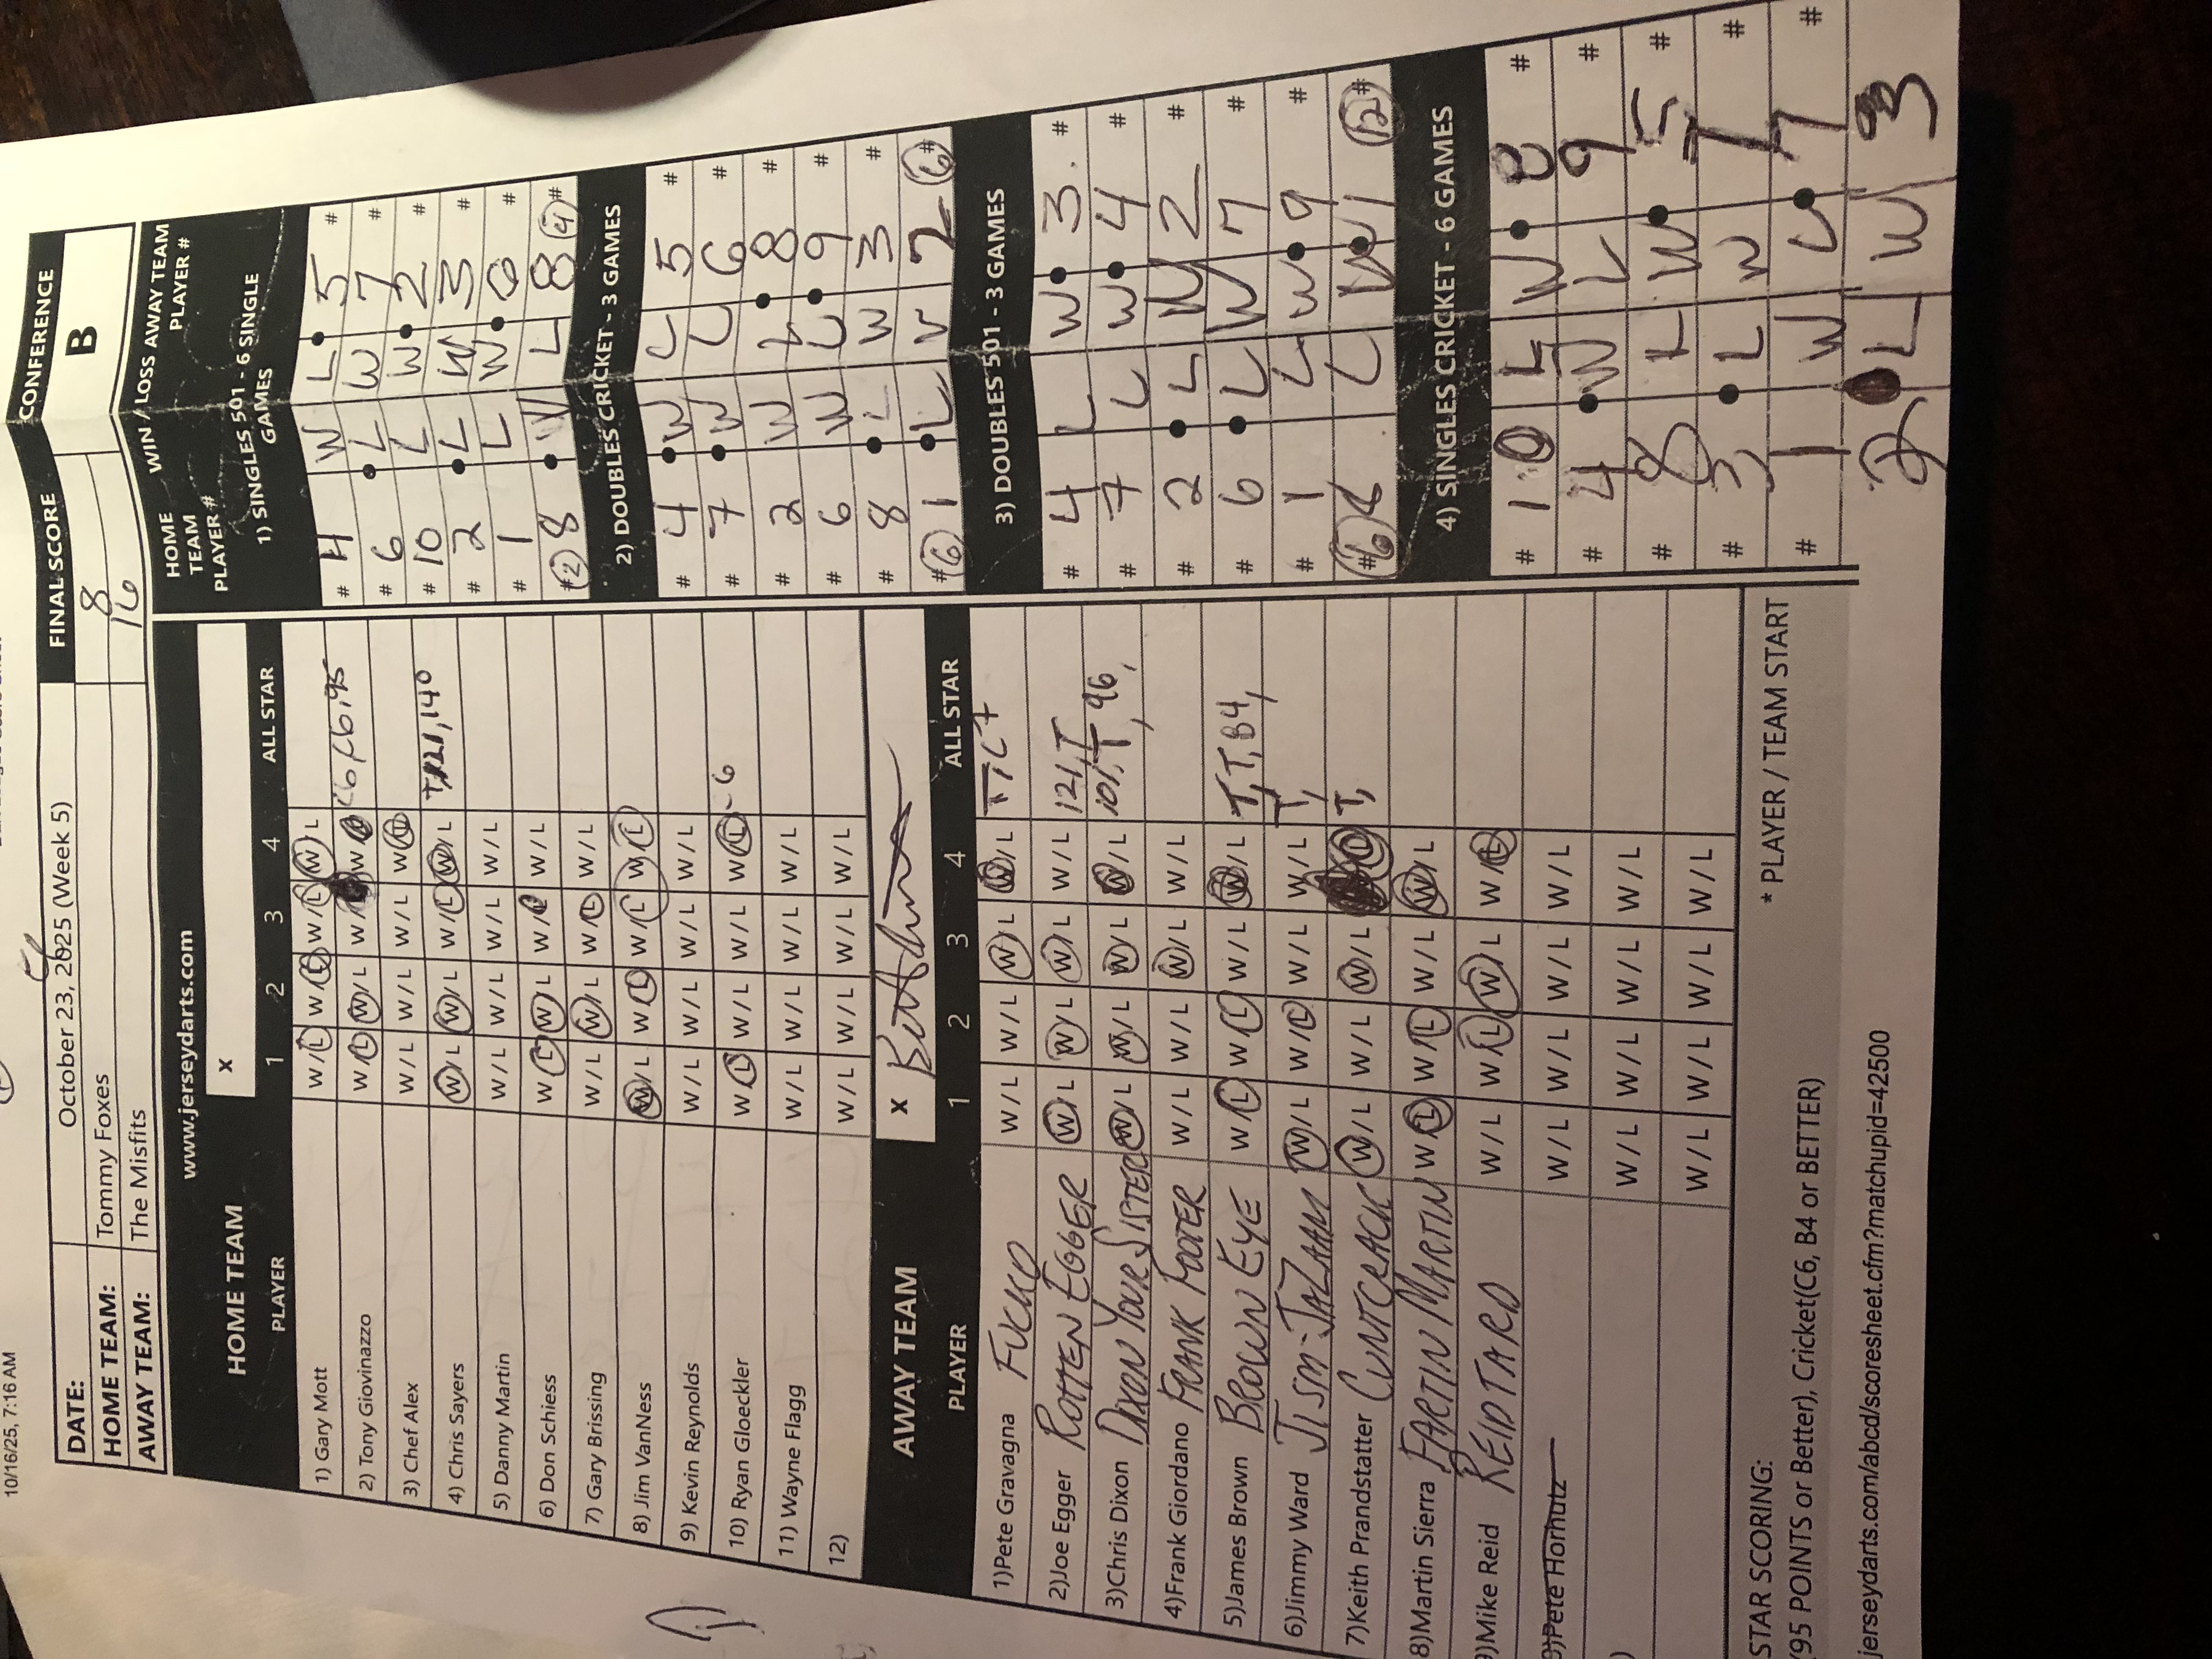 10/16/25, 7:16 AM
DATE: October 23, 2025 (Week 5) FINAL SCORE CONFERENCE
HOME TEAM: Tommy Foxes 8 B
AWAY TEAM: The Misfits 16
www.jerseydarts.com
HOME TEAM X
PLAYER 1 2 3 4 ALL STAR
1) Gary Mott W/L W/L W/L W/L
2) Tony Giovinazzo W/L W/L W/L W/L C6, C6, 95
3) Chef Alex W/L W/L W/L W/L
4) Chris Sayers W/L W/L W/L W/L T, 121, 140
5) Danny Martin W/L W/L W/L W/L
6) Don Schiess W/L W/L W/L W/L
7) Gary Brissing W/L W/L W/L W/L
8) Jim VanNess W/L W/L W/L W/L
9) Kevin Reynolds W/L W/L W/L W/L
10) Ryan Gloeckler W/L W/L W/L W/L C6
11) Wayne Flagg W/L W/L W/L W/L
12) W/L W/L W/L W/L
AWAY TEAM X
PLAYER 1 2 3 4 ALL STAR
1)Pete Gravagna FUCKO W/L W/L W/L W/L T, C7
2)Joe Egger ROTTEN EGGER W/L W/L W/L W/L 121, T
3)Chris Dixon DIXON YOUR SISTER W/L W/L W/L W/L 101, T, 96,
4)Frank Giordano FRANK FOOTER W/L W/L W/L W/L
5)James Brown BROWN EYE W/L W/L W/L W/L T, T, B4,
6)Jimmy Ward JISM-JAZAAM W/L W/L W/L W/L T,
7)Keith Prandstatter CUNTCRACK W/L W/L W/L W/L T,
8)Martin Sierra FARTIN MARTIN W/L W/L W/L W/L
9)Mike Reid REIDTARD W/L W/L W/L W/L
9)Pete Horhutz W/L W/L W/L W/L
) W/L W/L W/L W/L
W/L W/L W/L W/L
STAR SCORING: * PLAYER / TEAM START
(95 POINTS or Better), Cricket(C6, B4 or BETTER)
jerseydarts.com/abcd/scoresheet.cfm?matchupid=42500
HOME TEAM PLAYER# WIN / LOSS AWAY TEAM PLAYER #
1) SINGLES 501 - 6 SINGLE GAMES
# 4 W L 5 #
# 6 L W 7 #
# 10 L W 2 #
# 2 L W 3 #
# 1 L W 6 #
#2 8 W L 8 4 #
2) DOUBLES CRICKET - 3 GAMES
# 4 W L 5 #
# 7 W L 6 #
2 W L 8 #
# 6 W L 9 #
# 8 L W 3 #
#6 1 L W 2 6 #
3) DOUBLES 501 - 3 GAMES
# 4 L W 3 #
# 7 L W 4 #
# 2 L W 2 #
# 6 L W 7 #
# 1 L W 9 #
#6 L W 1 12 #
4) SINGLES CRICKET - 6 GAMES
# 10 L W 8 #
# 4 W L 9 #
# 8 L W 5 #
# 3 L W 1 #
# 1 W L 7 #
2 L W 3